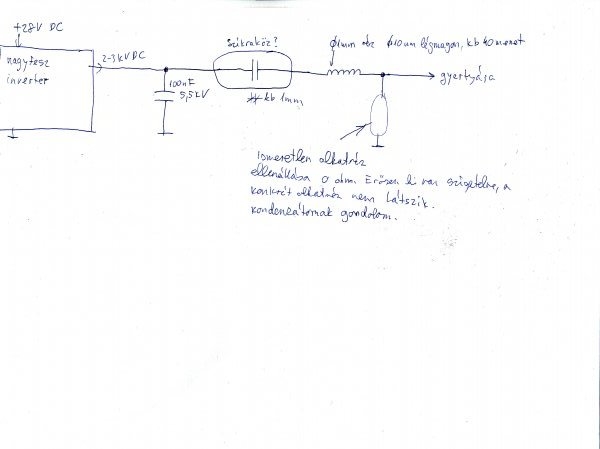 +28V DC
nagyfesz
inverter
2-3 kV DC
100nF
5,5kV
Szikraköz?
kb 1mm
Ø1mm réz Ø10mm légmagon, kb 40 menet
gyertyára
Ismeretlen alkatrész
ellenállása 0 ohm. Erősen ki van szigetelve, a
konkrét alkatrész nem látszik.
kondenzátornak gondolom.